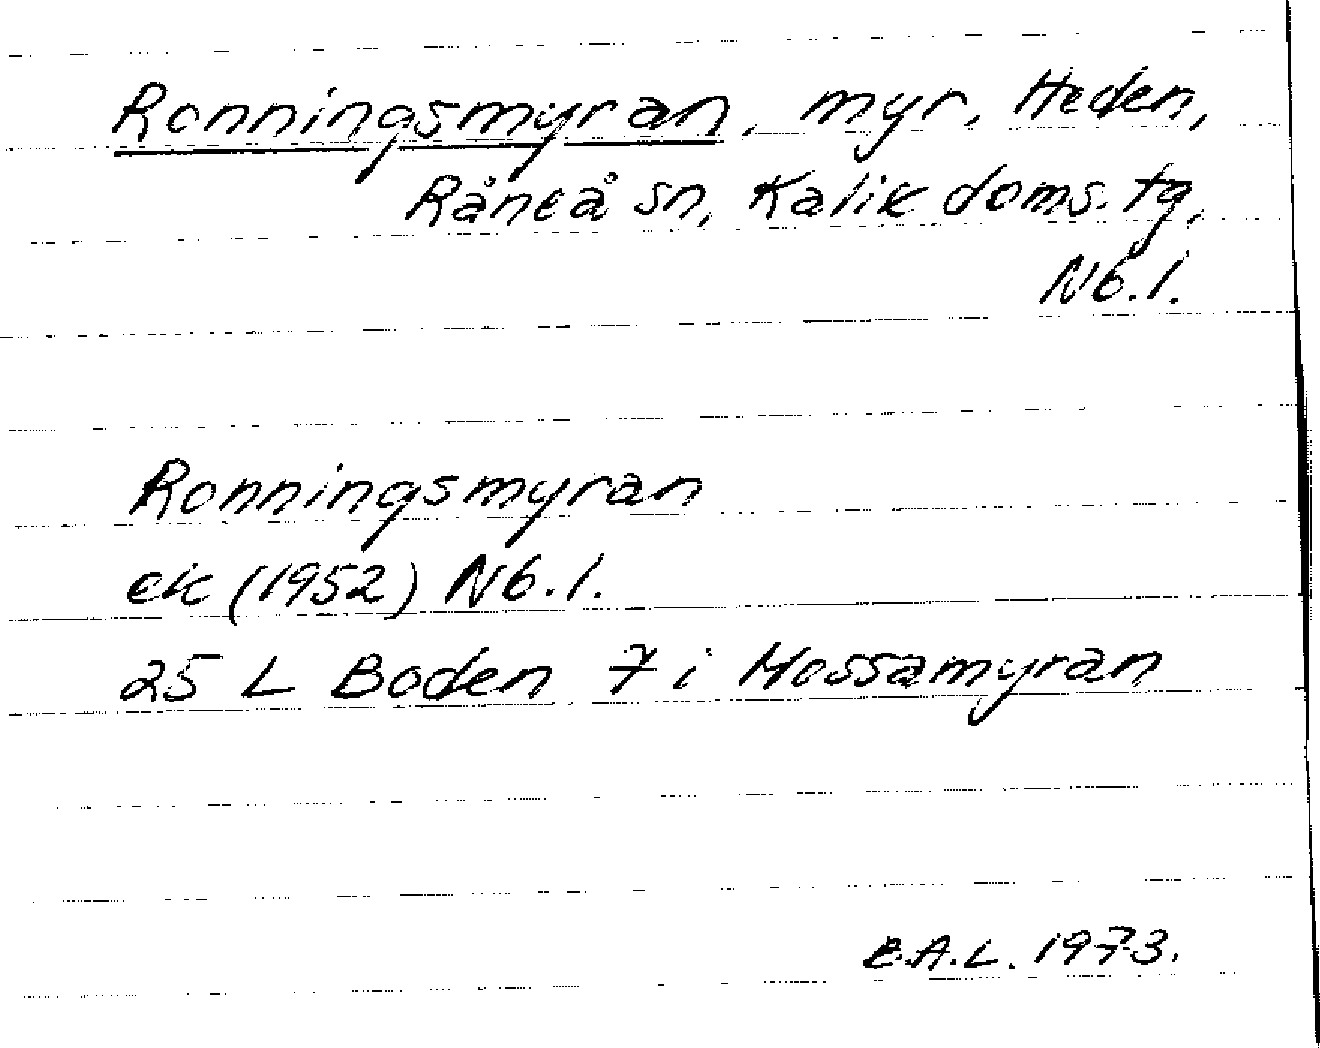 Ronningsmyran, myr, Heden,
Råneå sn, Kalix doms. tg,
Nb. l.
Ronningsmyran
ek (1952) Nb. l.
25 L Boden 7 i Mossamyran
E.A.L. 1973.